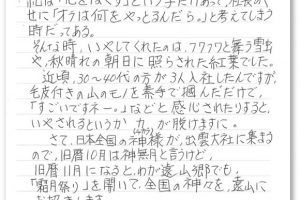 という
あって、社長のく
せに「オラは何をやっとるんだら。」と考えてしまう
時だってある。
そんな時、いやしてくれたのは、フワフワと舞う雪虫
や、秋晴れの朝日に照らされた紅葉でした。
近頃、30～40代の方が3人入社したんですが、
毛皮付きの山のモノを素手で掴んだだけで、
「すごいですネー。」などと感心されたりすると、
いやされるというか力が脱けますに。
さて、日本全国の神様が、出雲大社に集まる
ので、旧暦10月は神無月と言うけど、
旧暦11月になると、わが遠山郷でも、
「霜月祭り」を開いて、全国の神々を、遠山に
お招きします